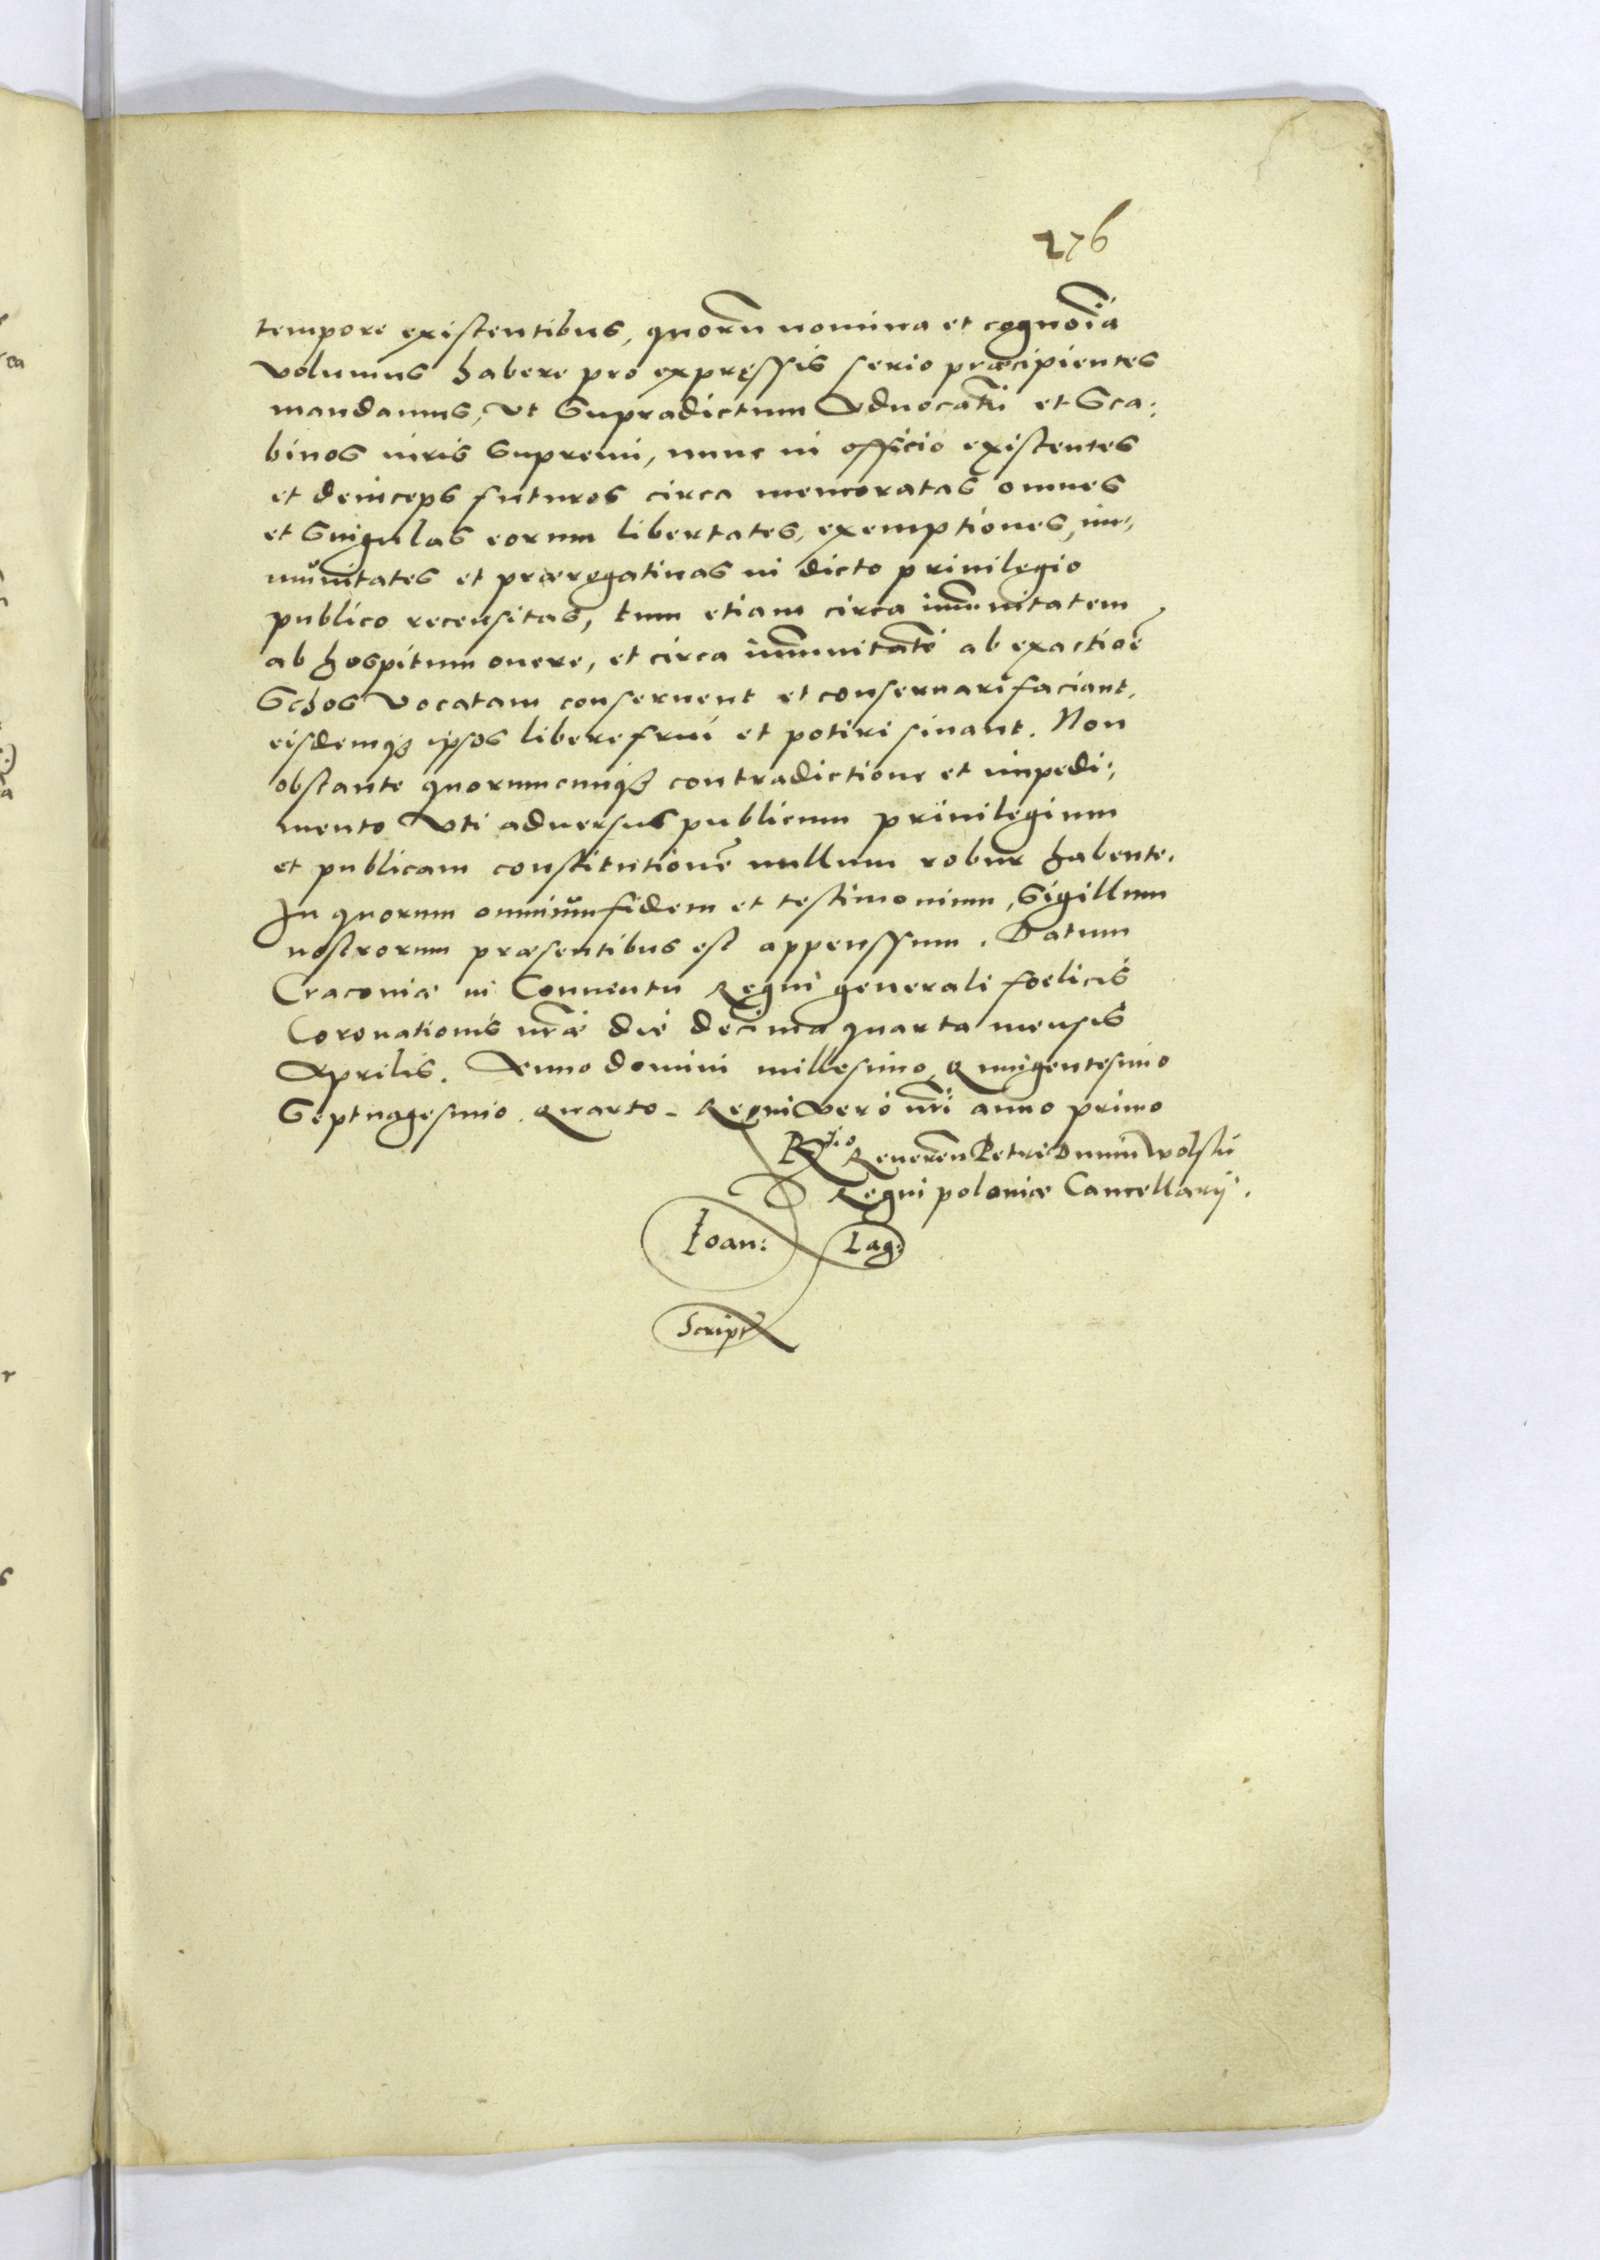 276
tempore existentibus, quorũ nomina et cognoĩa
volumus habere pro expressis serio præcipientes
mandamus, vt Supradictum Aduocatũ et Sca:
binos iuris Supremi, nunc in officio existentes
et deinceps futuros circa memoratas omnes
et Singulas eorum libertates, exemptiones, im:
munitates et prærogatiuas in dicto priuilegio
publico recensitas, tum etiam circa im̃unitatem
ab hospitum onere, et circa im̃unitatẽ ab exactioẽ
Schos vocatam conseruent et conseruari faciant,
eisdemqʒ ipsos libere frui et potiri sinant. Non
obstante quorumcunqʒ contradictione et impedi:
mento vti aduersus publicum priuilegium
et publicam constitutionẽ nullum robur habente.
In quorum omnium fidem et testimonium, Sigillum
nostrorum præsentibus est appenssum. Datum
Cracouiæ in Conuentu Regni generali foelicis
Coronationis nr̃æ die decima quarta mensis
Aprilis. Anno domini millesimo Quingentesimo
Septuagesimo Quarto. Regni vero nr̃i anno primo
Reuereñ Petri Dunin Wolskii
Regni poloniæ Cancellarij.
Ioan: Lag:
Script